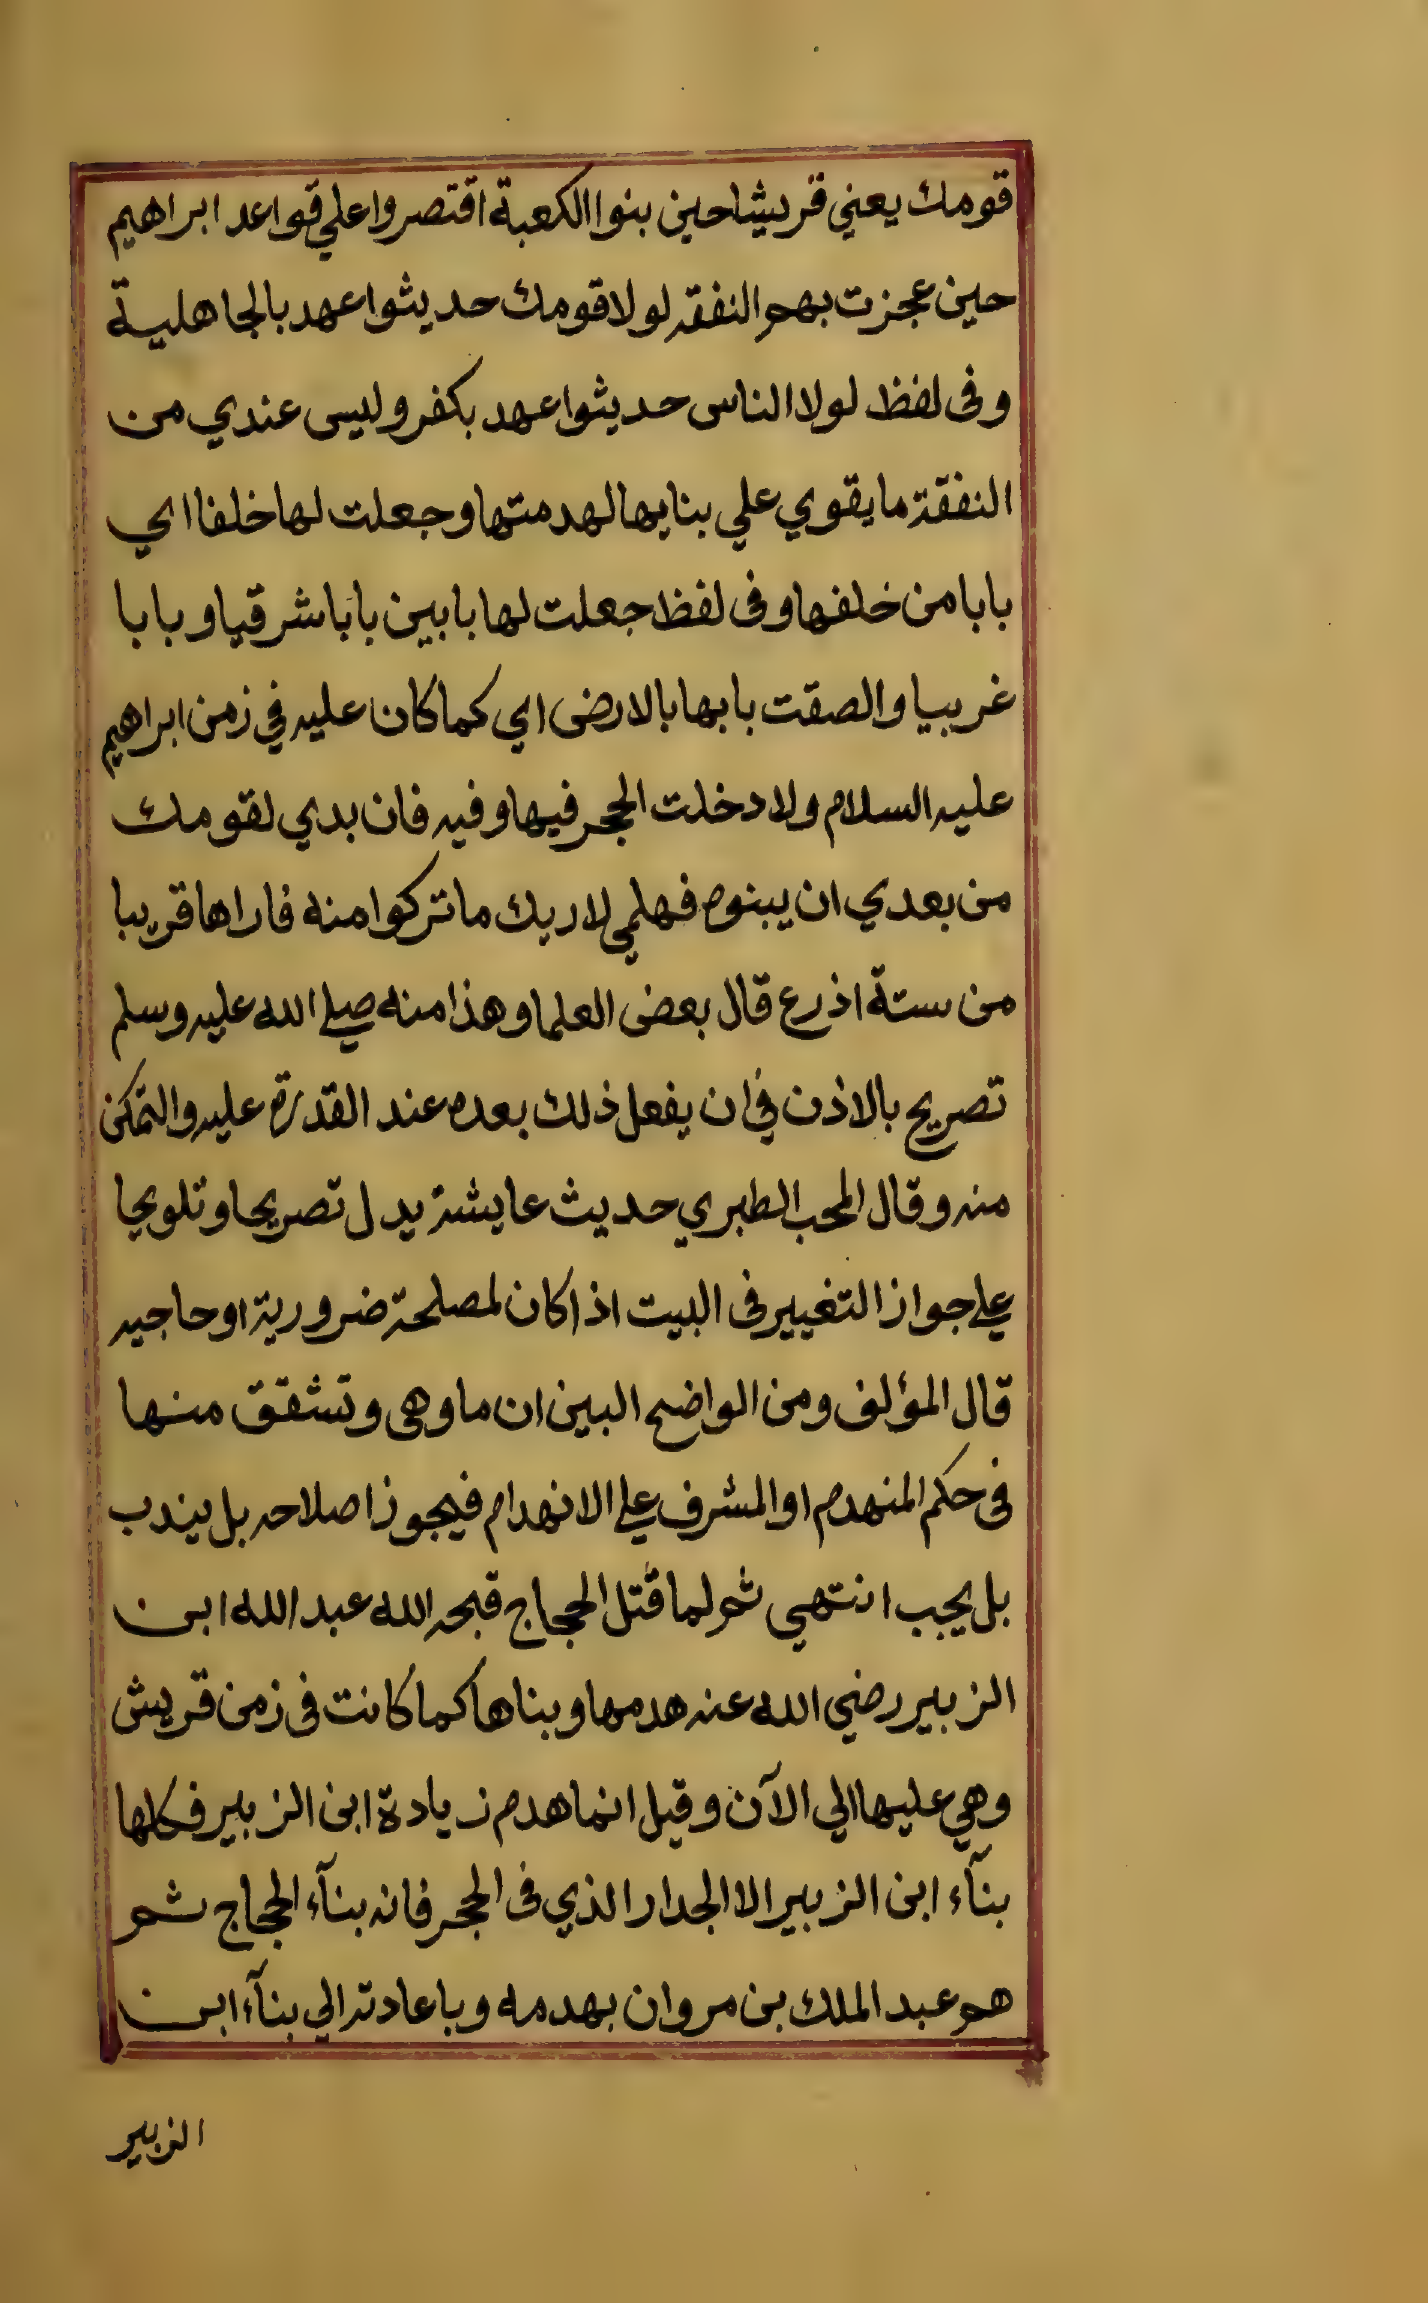 قومك يعني قريشا حين بنوا الكعبة اقتصروا علي قواعد ابراهيم
حين عجزت بهم النفقه لولا قومك حديثوا عهد بالجاهلية
وفى لفظ لولا الناس حديثوا عهد بكفر وليس عندي من
النفقة ما يقوي علي بنايها لهدمتها وجعلت لها خلفا اي
بابا من خلفها وفى لفظ جعلت لها بابين بابا شرقيا وبابا
غربيا والصقت بابها بالارض اي كما كان عليه في زمن ابراهيم
عليه السلام ولادخلت الحجر فيها وفيه فان بدي لقومك
من بعدي ان يبنوه فهلمي لاريك ما تركوا منه فاراها قريبا
من ستة اذرع قال بعض العلما وهذا منه صلى الله عليه وسلم
تصريح بالاذن في ان يفعل ذلك بعده عند القدرة عليه والتمكن
منه وقال المحب الطبري حديث عايشة يدل تصريحا وتلويحا
على جواز التغيير فى البيت اذا كان لمصلحة ضرورية او حاجيه
قال المؤلف ومن الواضح البين ان ما وهى وتشقق منها
فى حكم المنهدم او المشرف على الانهدام فيجوز اصلاحه بل يندب
بل يجب انتهي ثم لما قتل الحجاج قبحه الله عبد الله ابن
الزبير رضي الله عنه هدمها وبناها كما كانت فى زمن قريش
وهي عليها الي الآن وقيل انما هدم زيادة ابن الزبير فكلها
بنآء ابن الزبير الا الجدار الذي فى الحجر فانه بنآء الحجاج ثم
هم عبد الملك بن مروان بهدمه وباعادته الي بنآء ابن
الزبير